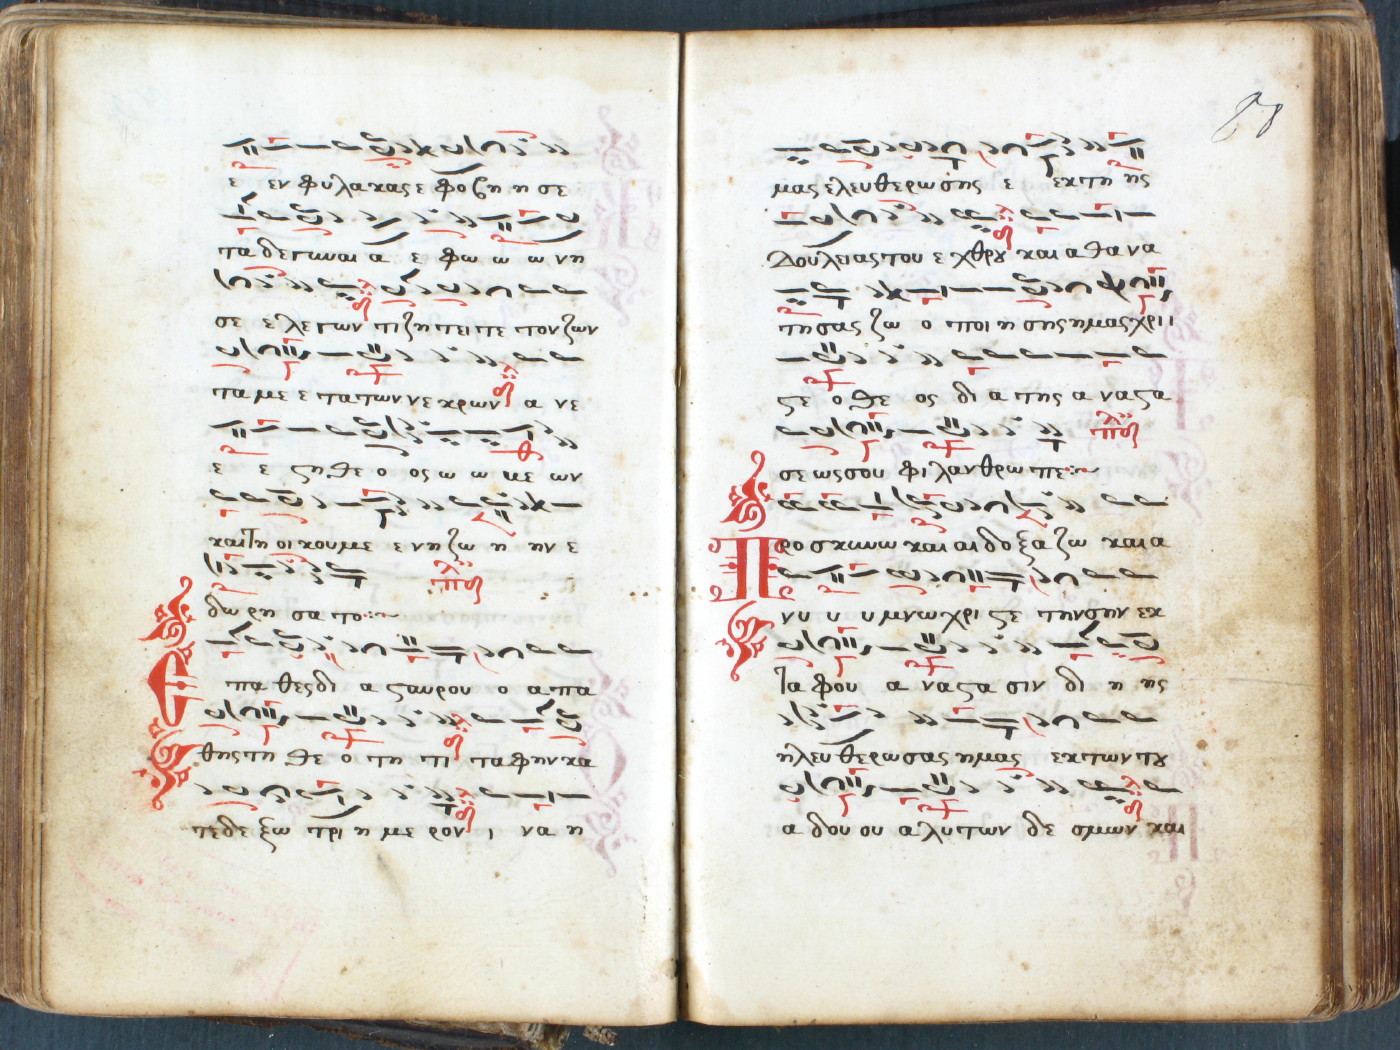 ε εν φυλακας ε φο βη η σε
τα δε γυναι α ε φω ω ω νη
σε ε λε γων τι ζη τει τε τον ζων
τα με ε τα των νε κρων α νε
ε ε ϛη θε ο ος ω ω με ων
και τη οι κου με ε νη ζω η ην ε
δω ρη σα το
Ε πα θες δι α ϛαυρου ο α πα
θης τη θε ο τη τι τα φην κα
τε δε ξω τρι η με ρον ι να η
88
μας ελευθερωσης ε εκ τη ης
δουλειας του ε χθρȣ και α θα να
τησας ζω ο ποι η σης ημας χρι ι
ϛε ο θε ος δι α της α να ϛα
σε ως σου φι λανθρω πε
Προσκυνω και αι δο ξα ζω και α
νυ υ υ υμνω χρι ϛε την σην εκ
τα φου α να ϛα σιν δι η ης
ηλευθερωσας ημας εκ των τȣ
α δου ου α λυτων δε σμων και